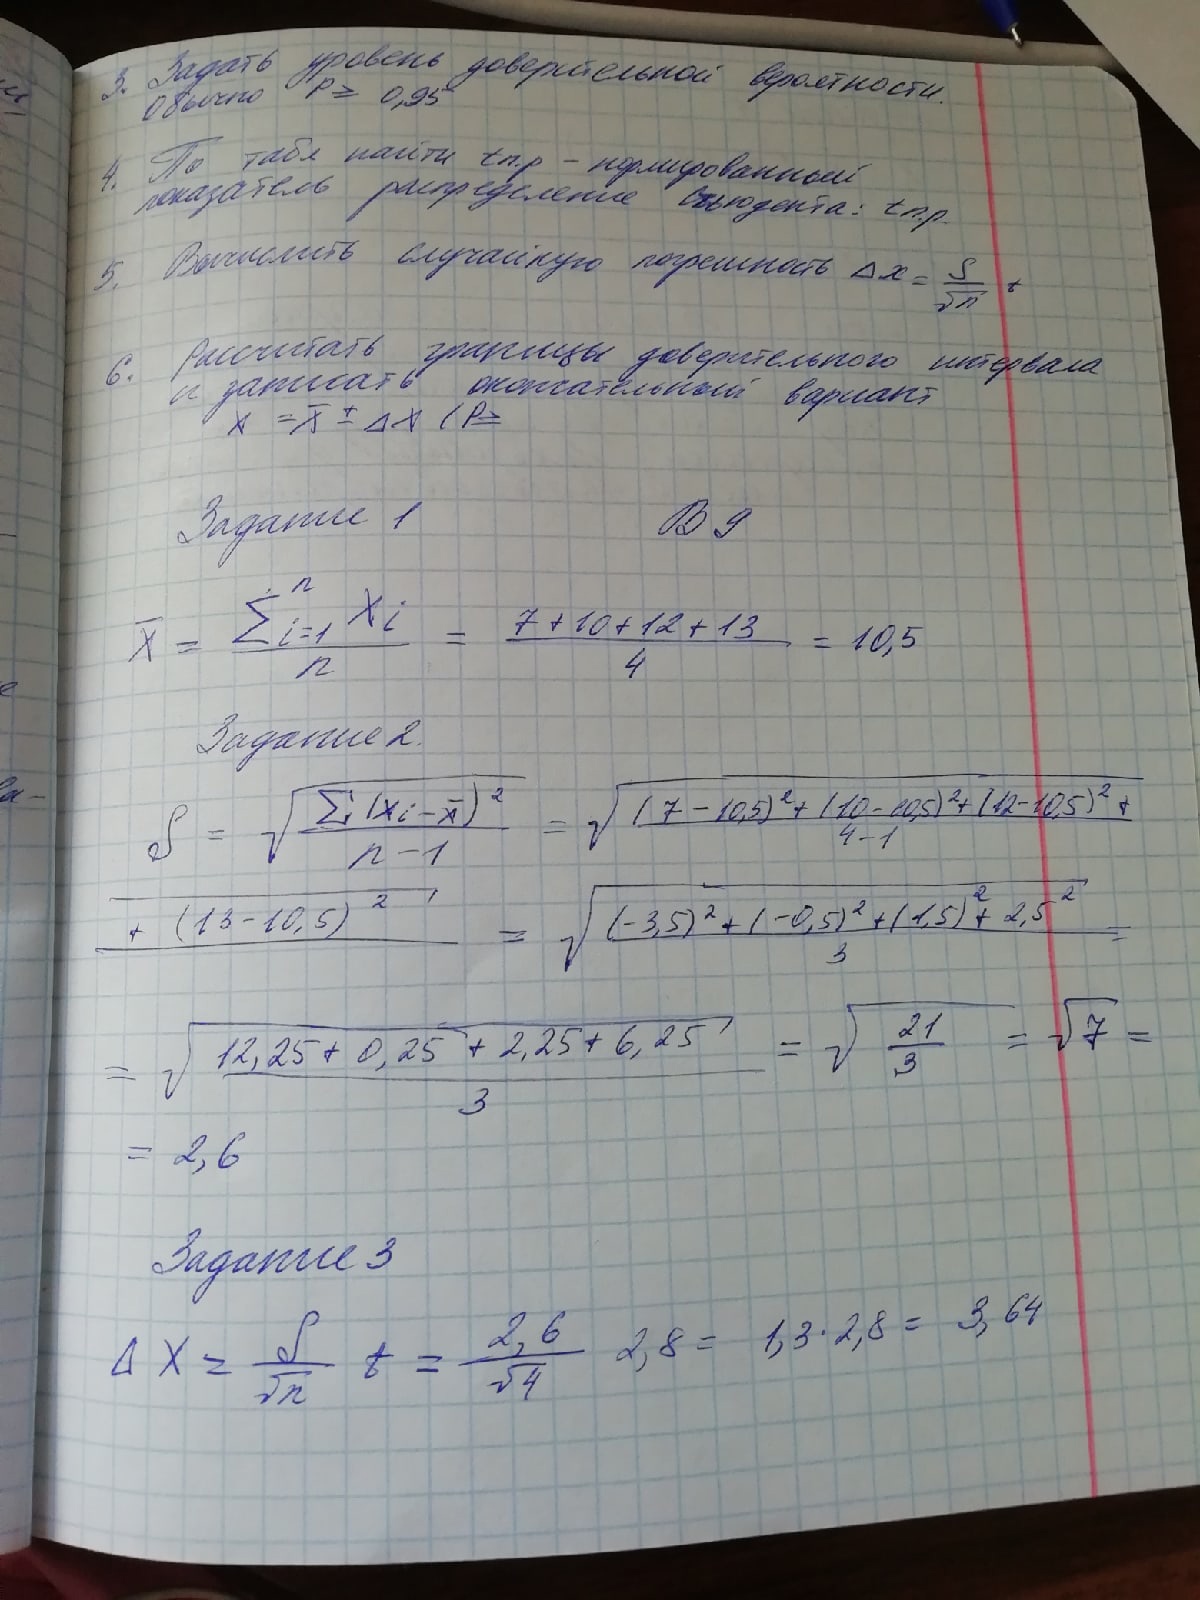 3. Задать уровень доверительной вероятности.
Обычно P ≥ 0,95
4. По табл найти tn.p - нормированный
показатель распределение Стьюдента: tn.p.
5. Вычислить случайную погрешность Δx = S/√n t
6. Рассчитать границы доверительного интервала
и записать окончательный вариант
X = X̅ ± ΔX (P≥
Задание 1 В 9
X̅ = ∑ⁿi=1 Xi / n = 7+10+12+13 / 4 = 10,5
Задание 2.
S = √(∑(xi-x̅)² / n-1) = √((7-10,5)²+(10-10,5)²+(12-10,5)²+ / 4-1
+ (13-10,5)² = √((-3,5)²+(-0,5)²+(1,5)²+2,5² / 3) =
= √(12,25+0,25+2,25+6,25 / 3) = √(21/3) = √7 =
= 2,6
Задание 3
ΔX = S/√n t = 2,6/√4 2,8 = 1,3·2,8 = 3,64